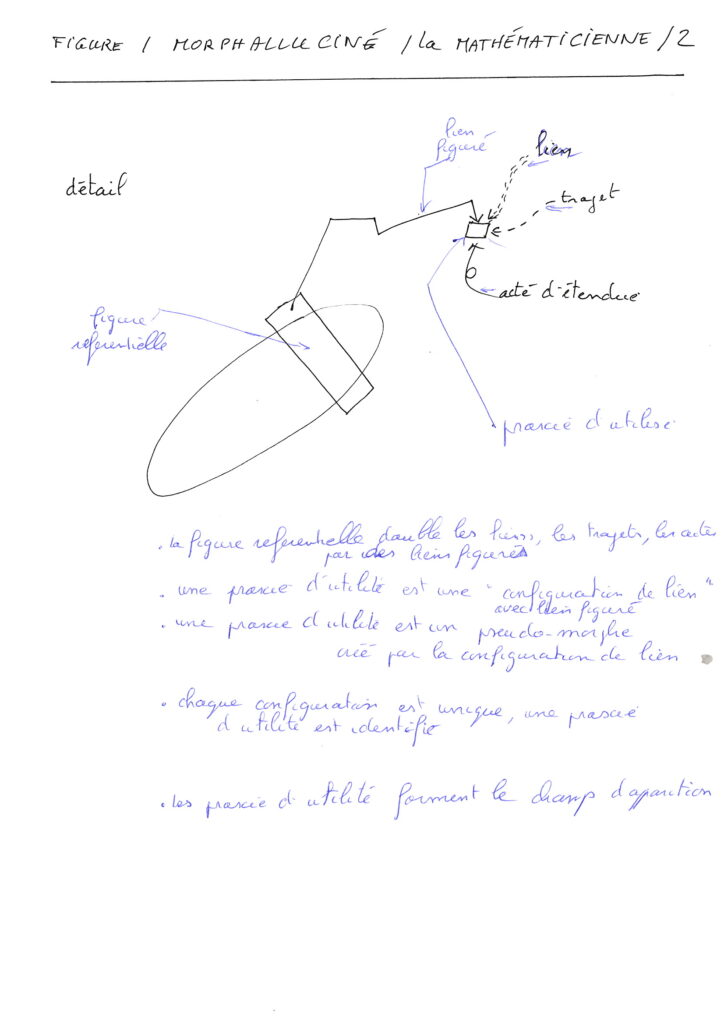 FIGURE / MORPHALLUCINÉ / la MATHÉMATICIENNE / 2
lien
figuré
lien
détail
trajet
acté d'étendue
figure
referentielle
prascie d'utilise
. la figure referentielle double les liens, les trajets, les actes
par des liens figurés
. une prascie d'utilité est une "configuration de lien"
avec lien figuré
. une prascie d'utilité est un pseudo-morphe
créé par la configuration de lien
. chaque configuration est unique, une prascie
d'utilité est identifié
. les prascie d'utilité forment le champ d'aparition